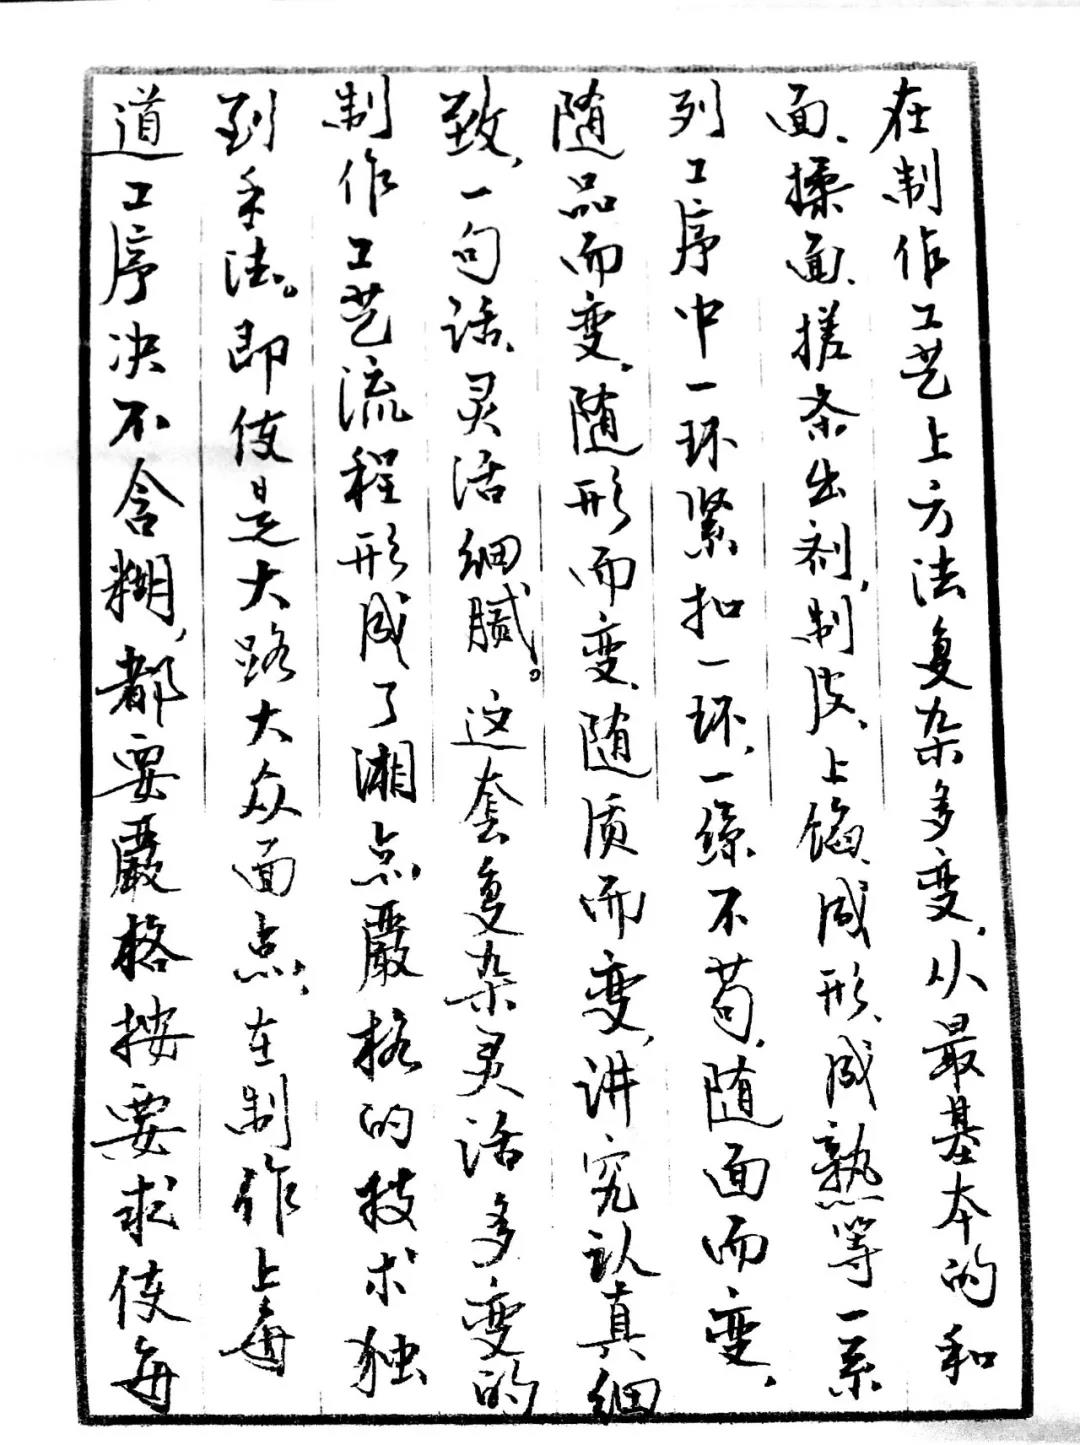 在制作工艺上方法复杂多变,从最基本的和
面、揉面、搓条出剂,制皮、上馅、成形、成熟等一系
列工序中一环紧扣一环,一丝不苟,随面而变,
随品而变,随形而变、随质而变,讲究认真细
致,一句话、灵活细腻。这套复杂灵活多变的
制作工艺流程形成了湘点嚴格的技术独
到手法。即使是大路大众面点,在制作上每
道工序决不含糊,都要嚴格按要求使每